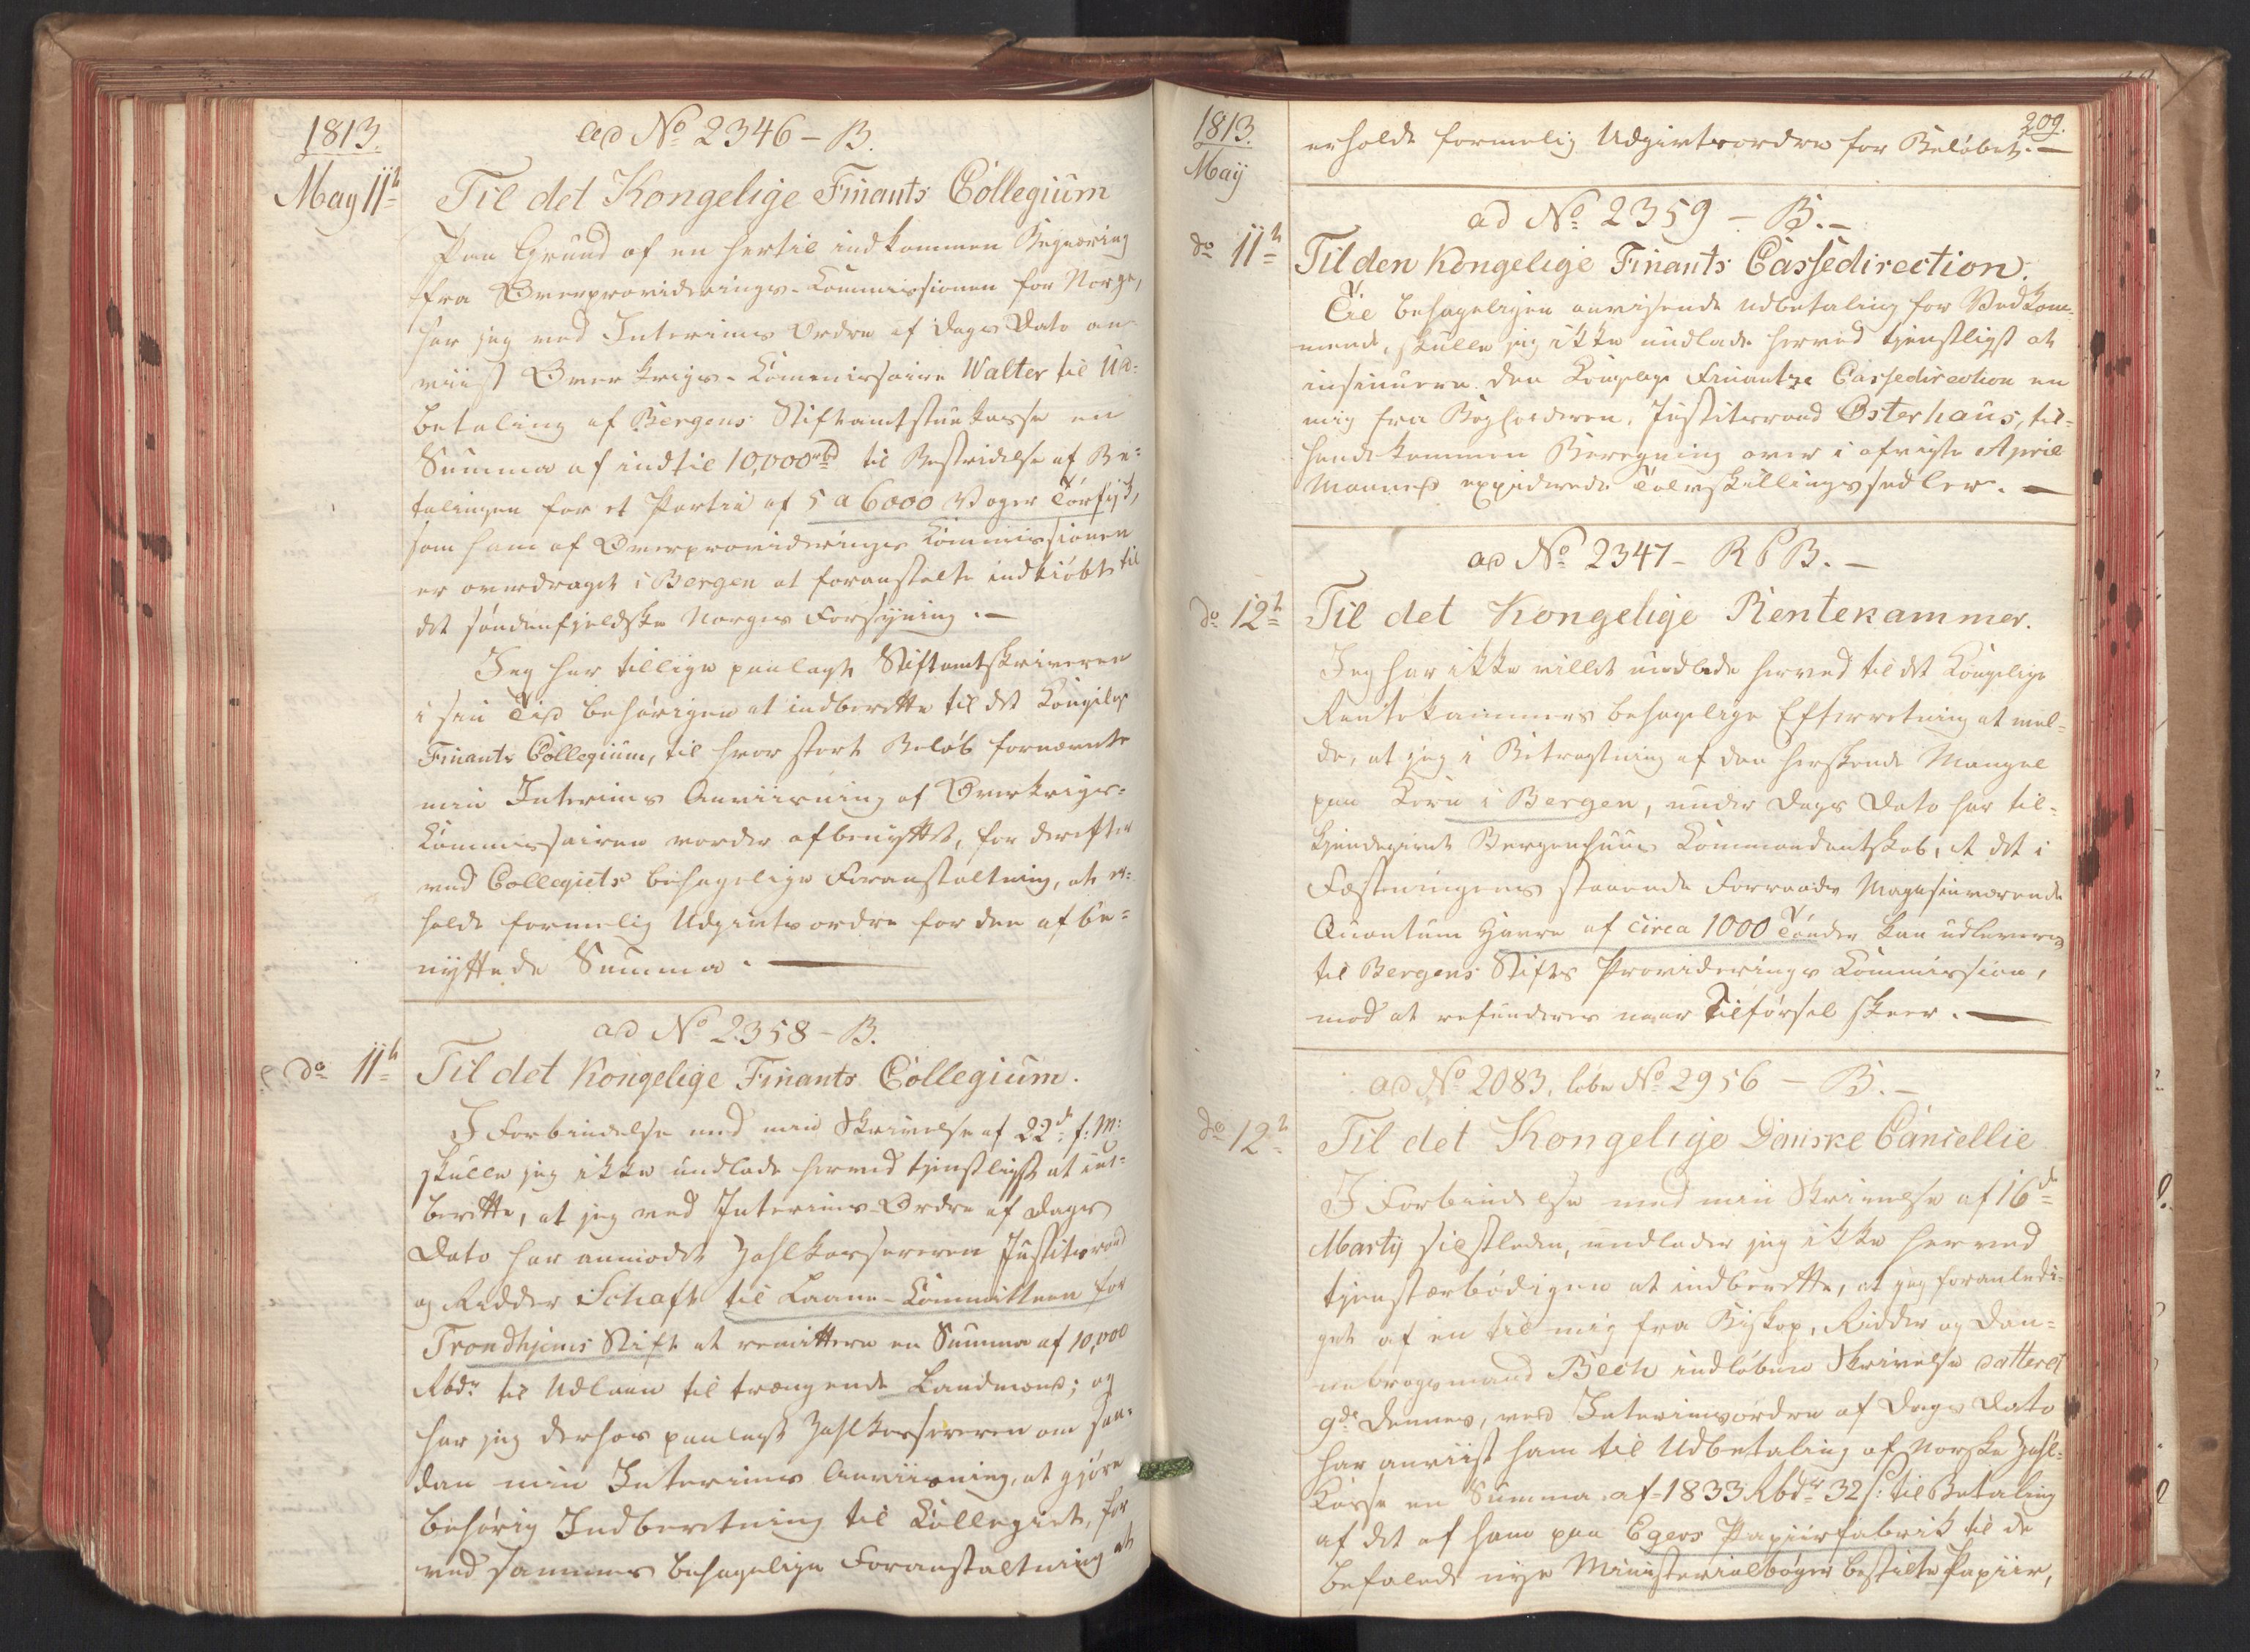 1813.
May 11te
ad No 2346 - B.
Til det Kongelige Finants Collegium
Paa Grund af en hertil indkommen Begiæring
fra Overprovideerings-Commissionen for Norge,
har jeg ved Interims Ordre af Dags Dato an-
viist Over Krigs-Commissaire Walter til Ud-
betaling af Bergens Stiftamtstuekasse en
Summa af indtil 10,000 rbd til Bestridelse af Be-
talingen for et Partie af 5 a 6000 Voger Törfisk,
som ham af Overprovideerings Commissionen
er overdraget i Bergen at foranstalte indkiøbt til
det søndenfjeldske Norges Forsyning. —
Jeg har tillige paalagt Stiftamtskriveren
i sin Tid behørigen at indberette til det Kongelige
Finants Collegium, til hvor stort Beløb fornævnte
min Interims Anviisning af Overkrigs-
Commissairen vorder afbenyttet, for derefter
ved Collegiets behagelige Foranstaltning, at er-
holde formelig Udgivtsordre for den afbe-
nyttede Summa. —
ad No 2358 - B.
do 11te
Til det Kongelige Finants Collegium.
I Forbindelse med min Skrivelse af 22de f: M:
skulle jeg ikke undlade herved tjenstligst at ind-
berette, at jeg ved Interims-Ordre af Dags
Dato har anmodet Zahlkasserer Justitsraad
og Ridder Schaft til Laane-Committeen for
Trondhjems Stift at remittere en Summa af 10,000
Rbdr til Udlaan til trængende Landmænd; og
har jeg derhos paalagt Zahlkassereren om saa-
dan min Interims Anviisning, at gjøre
behørig Indberetning til Collegiet, for
ved sammes behagelige Foranstaltning at
1813.
May
209.
erholde formelig Udgivtsordre for Beløbet. —
ad No 2359 - B. -
do 11te
Til den Kongelige Finants Cassedirection.
Til behageligen anvisende Udbetaling for Vedkom-
mende, skulle jeg ikke undlade herved tjenstligst at
insinuere den Kongelige Finants Cassedirection en
mig fra Bogholderen, Justitsraad Osterhaus, til-
hændekommen Beregning over i afvigte April
Maaned expederede Tolvskillingssedler. —
ad No 2347 - R & B. -
do 12te
Til det Kongelige Rentekammer.
Jeg har ikke villet undlade herved til det Kongelige
Rentekammers behagelige Efterretning at mel-
de, at jeg i Betragtning af den herskende Mangel
paa Korn i Bergen, under Dags Dato har til-
kjendegivet Bergenhuus Commandantskab, at det i
Fæstningens staaende Forraads Magasin værende
Quantum Havre af circa 1000 Tønder kan udleveres
til Bergens Stifts Provideerings Commission,
mod at refunderes naar Tilførsel skeer. —
ad No 2083, løbe No 2956 - B. -
do 12te
Til det Kongelige Danske Cancellie
I Forbindelse med min Skrivelse af 16de
Martij sidstleden, undlader jeg ikke herved
tjenstærbødigen at indberette, at jeg foranledi-
get af en til mig fra Biskop, Ridder og Dan-
nebrogsmand Bech indløben Skrivelse datteret
9de dennes, ved Interimsordre af Dags Dato
har anviist ham til Udbetaling af Norske Zahl-
Casse en Summa af 1833 Rbdr 32 s: til Betaling
af det af ham paa Egers Papiirfabrik til de
befalede nye Ministerialbøger bestilte Papiir,